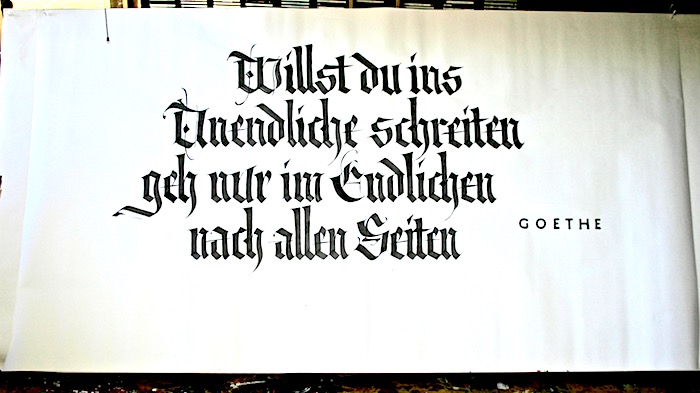 Willst du ins
Unendliche schreiten
geh nur im Endlichen
nach allen Seiten
GOETHE